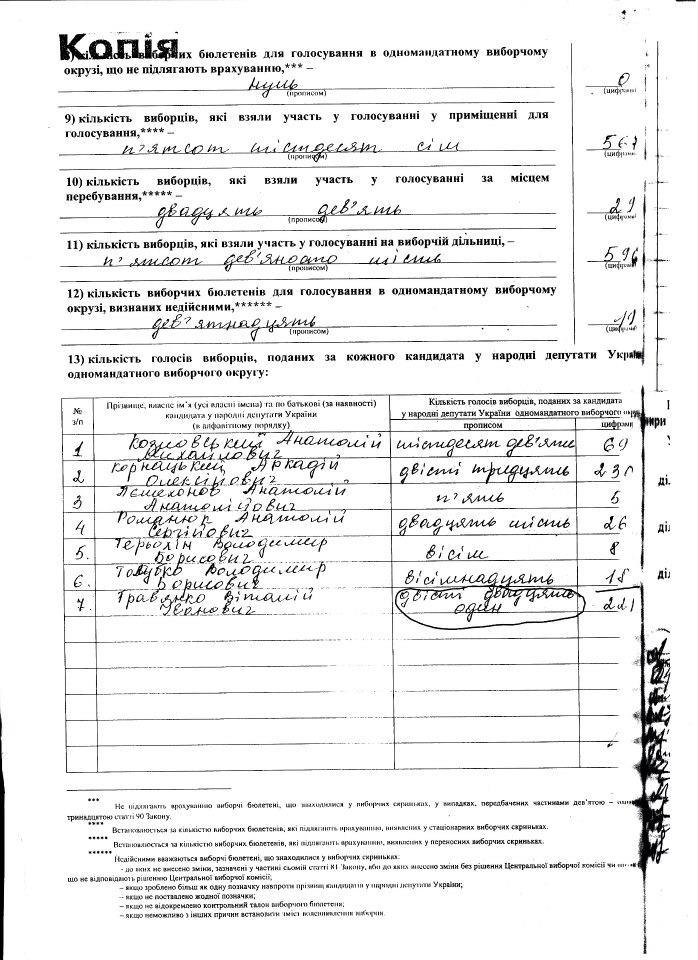 Копія
8) кількість виборчих бюлетенів для голосування в одномандатному виборчому
окрузі, що не підлягають врахуванню,*** –
нуль 0
(прописом) (цифрами)
9) кількість виборців, які взяли участь у голосуванні у приміщенні для
голосування,**** –
п'ятсот шістдесят сім 567
(прописом) (цифрами
10) кількість виборців, які взяли участь у голосуванні за місцем
перебування,***** –
двадцять дев'ять 29
(прописом) (цифрами
11) кількість виборців, які взяли участь у голосуванні на виборчій дільниці, –
п'ятсот дев'яносто шість 596
(прописом) (цифрами
12) кількість виборчих бюлетенів для голосування в одномандатному виборчому
окрузі, визнаних недійсними,****** –
дев'ятнадцять 19
(прописом) (цифрами
13) кількість голосів виборців, поданих за кожного кандидата у народні депутати Украї
одномандатного виборчого округу:
№
з/п
Прізвище, власне ім'я (усі власні імена) та по батькові (за наявності)
кандидата у народні депутати України
(в алфавітному порядку)
Кількість голосів виборців, поданих за кандидата
у народні депутати України одномандатного виборчого окру
прописом цифрам
1 Козловський Анатолій шістдесят дев'ять 69
Михайлович
2 Корнацький Аркадій двісті тридцять 230
Олексійович
3 Пєшехонов Анатолій п'ять 5
Анатолійович
4 Романюк Анатолій двадцять шість 26
Сергійович
5. Терьохін Володимир вісім 8
Борисович
6. Володимир вісімнадцять 18
Борисович
7. Травянко Віталій двісті двадцять 221
Іванович один
*** Не підлягають врахуванню виборчі бюлетені, що знаходилися у виборчих скриньках, у випадках, передбачених частинами дев'ятою –
тринадцятою статті 90 Закону.
**** Встановлюється за кількістю виборчих бюлетенів, які підлягають врахуванню, виявлених у стаціонарних виборчих скриньках.
***** Встановлюється за кількістю виборчих бюлетенів, які підлягають врахуванню, виявлених у переносних виборчих скриньках.
****** Недійсними вважаються виборчі бюлетені, що знаходилися у виборчих скриньках:
- до яких не внесено зміни, зазначені у частині сьомій статті 81 Закону, або до яких внесено зміни без рішення Центральної виборчої комісії чи
що не відповідають рішенню Центральної виборчої комісії;
– якщо зроблено більш як одну позначку навпроти прізвищ кандидатів у народні депутати України;
– якщо не поставлено жодної позначки;
– якщо не відокремлено контрольний талон виборчого бюлетеня;
– якщо неможливо з інших причин встановити зміст волевиявлення виборця.